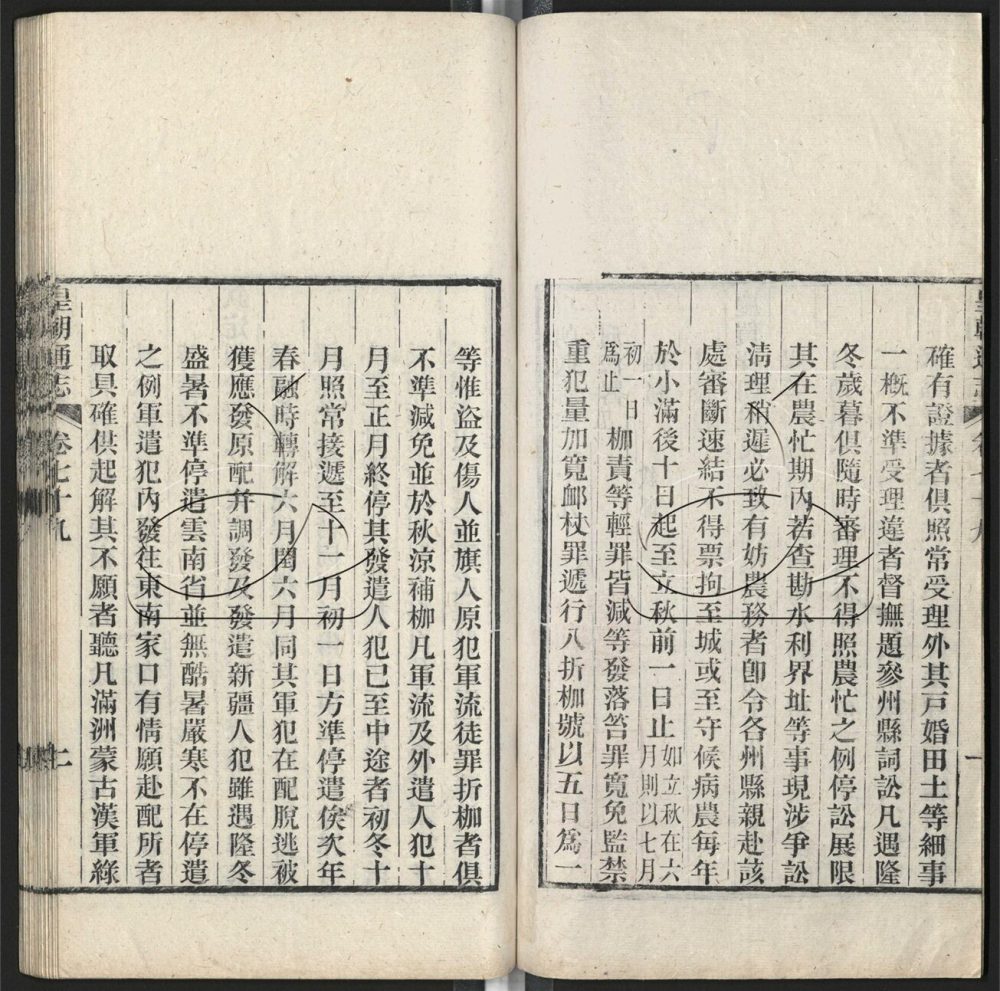 確有證據者俱照常受理外其戸婚田土等細事
一槪不準受理違者督撫題參州縣詞訟凡遇隆
冬歲暮俱隨時審理不得照農忙之例停訟展限
其在農忙期內若查勘水利界址等事現涉爭訟
淸理稍遲必致有妨農務者卽令各州縣親赴該
處審斷速結不得票拘至城或至守候病農每年
於小滿後十日起至立秋前一日止如立秋在六月則以七月
初一日爲止枷責等輕罪皆減等發落笞罪寬免監禁
重犯量加寬䘏杖罪遞行八折枷號以五日爲一
等惟盜及傷人並旗人原犯軍流徒罪折枷者俱
不準減免並於秋涼補枷凡軍流及外遣人犯十
月至正月終停其發遣人犯已至中途者初冬十
月照常接遞至十一月初一日方準停遣俟次年
春融時轉解六月閏六月同其軍犯在配脫逃被
獲應發原配并調發及發遣新疆人犯雖遇隆冬
盛暑不準停遣雲南省並無酷暑嚴寒不在停遣
之例軍遣犯內發往東南家口有情願赴配所者
取具確供起解其不願者聽凡滿洲蒙古漢軍綠
皇朝通志 卷七十九